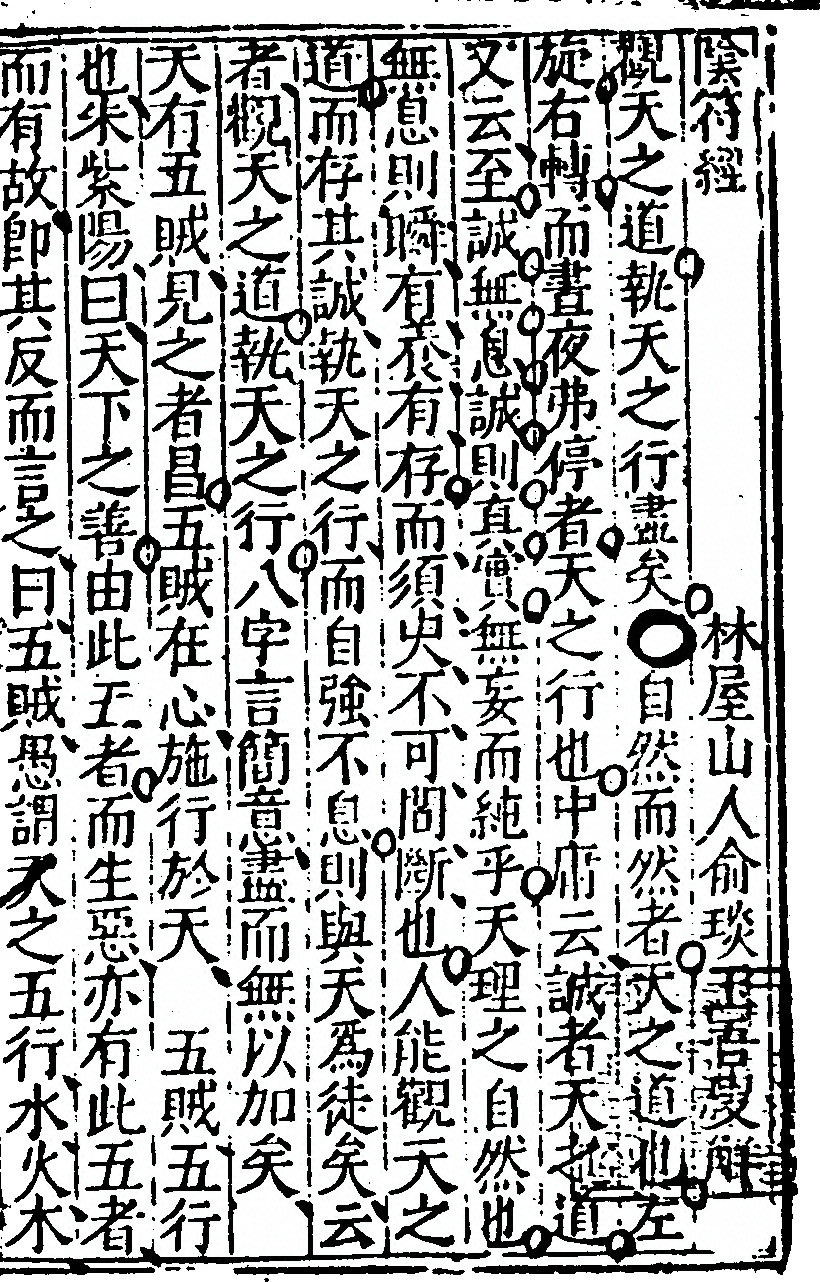 陰符經
林屋山人俞琰玉吾叟解
觀天之道執天之行盡矣
自然而然者天之道也左
旋右轉而晝夜弗停者天之行也中庸云誠者天之道
又云至誠無息誠則真實無妄而純乎天理之自然也
無息則瞬有養有存而須臾不可間斷也人能觀天之
道而存其誠執天之行而自強不息則與天爲徒矣云
者觀天之道執天之行八字言簡意盡而無以加矣
天有五賊見之者昌五賊在心施行於天
五賊五行
也朱紫陽曰天下之善由此五者而生惡亦有此五者
而有故即其反而言之曰五賊愚謂天之五行水火木